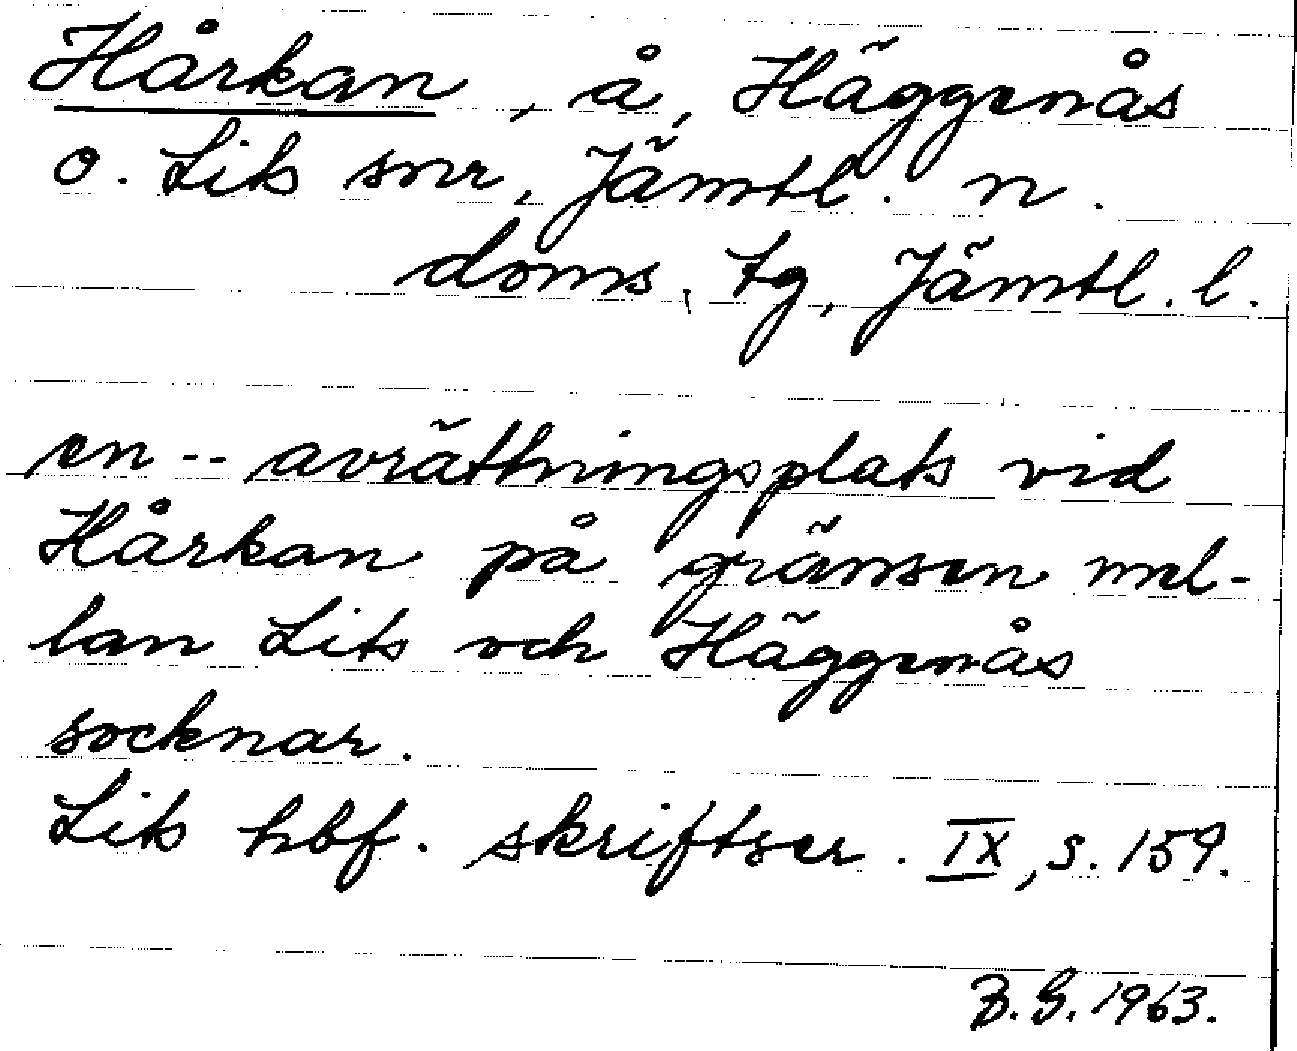 Hårkan, å, Häggenås
o. Lits snr, Jämtl. n.
doms. tg, Jämtl. l.
en -- avrättningsplats vid
Hårkan på gränsen mel-
lan Lits och Häggenås
socknar.
Lits hbf. skriftser. IX, s. 159.
B. G. 1963.